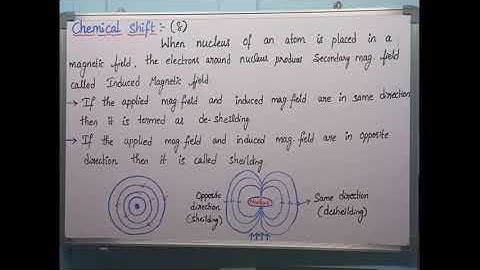 Chemical Shift :- (δ)
When nucleus of an atom is placed in a
magnetic field. the electrons around nucleus produces Secondary mag. field
called Induced Magnetic field
→ If the applied mag.field and induced mag.field are in same direction
then it is termed as de-sheilding
→ If the applied mag.field and induced mag.field are in opposite
direction then it is called sheilding.
Opposite
direction
(sheilding)
Nucleus
Same direction
(desheilding)